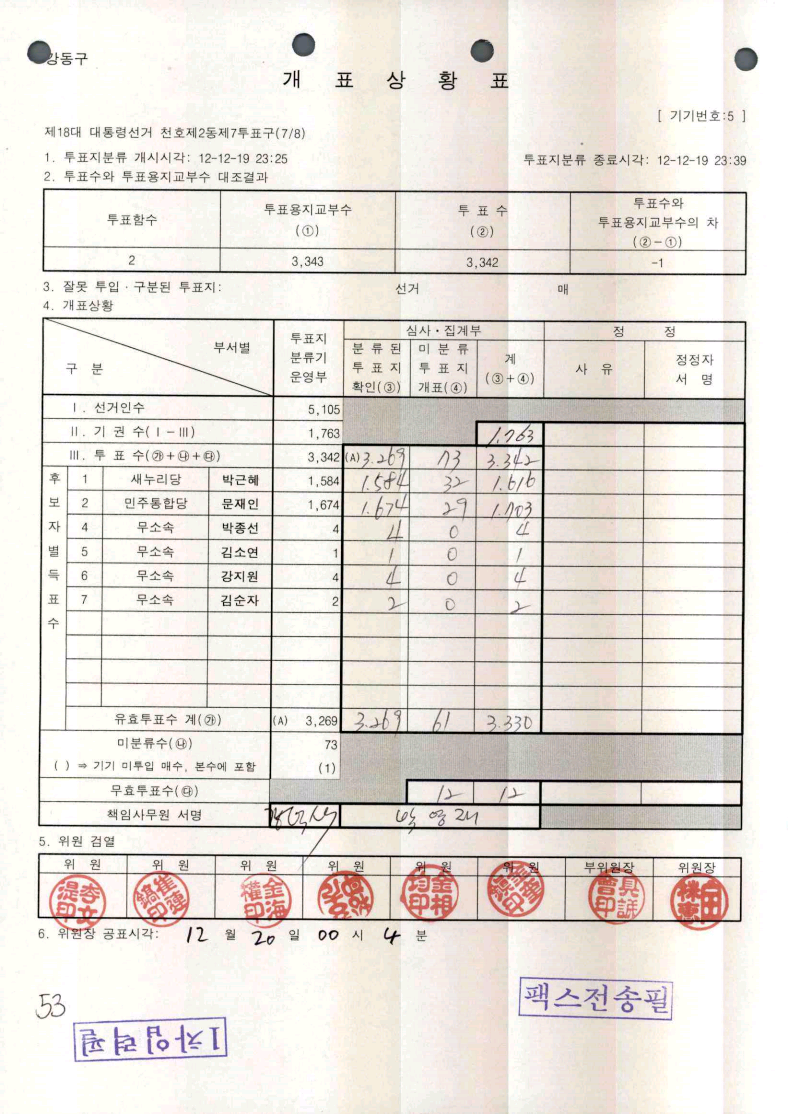 강동구
개 표 상 황 표
[ 기기번호:5 ]
제18대 대통령선거 천호제2동제7투표구(7/8)
1. 투표지분류 개시시각: 12-12-19 23:25 투표지분류 종료시각: 12-12-19 23:39
2. 투표수와 투표용지교부수 대조결과
투표함수 투표용지교부수 (①) 투 표 수 (②) 투표수와 투표용지교부수의 차 (②-①)
2 3,343 3,342 -1
3. 잘못 투입·구분된 투표지: 선거 매
4. 개표상황
구 분 부서별 투표지 분류기 운영부 심사·집계부 정 정
분 류 된 투 표 지 확인(③) 미 분 류 투 표 지 개표(④) 계 (③+④) 사 유 정정자 서 명
Ⅰ. 선거인수 5,105
Ⅱ. 기 권 수(Ⅰ-Ⅲ) 1,763 1.763
Ⅲ. 투 표 수(㉮+㉯+㉰) 3,342 (A) 3.269 73 3.342
후보자별득표수
1 새누리당 박근혜 1,584 1.584 32 1.616
2 민주통합당 문재인 1,674 1.674 29 1.703
4 무소속 박종선 4 4 0 4
5 무소속 김소연 1 1 0 1
6 무소속 강지원 4 4 0 4
7 무소속 김순자 2 2 0 2
유효투표수 계(㉮) (A) 3,269 3.269 61 3.330
미분류수(㉯) 73
( ) ⇒ 기기 미투입 매수, 본수에 포함 (1)
무효투표수(㉰) 12 12
책임사무원 서명
5. 위원 검열
위 원 위 원 위 원 위 원 위 원 위 원 부위원장 위원장
6. 위원장 공표시각: 12 월 20 일 00 시 4 분
53
팩스전송필
1차입력필